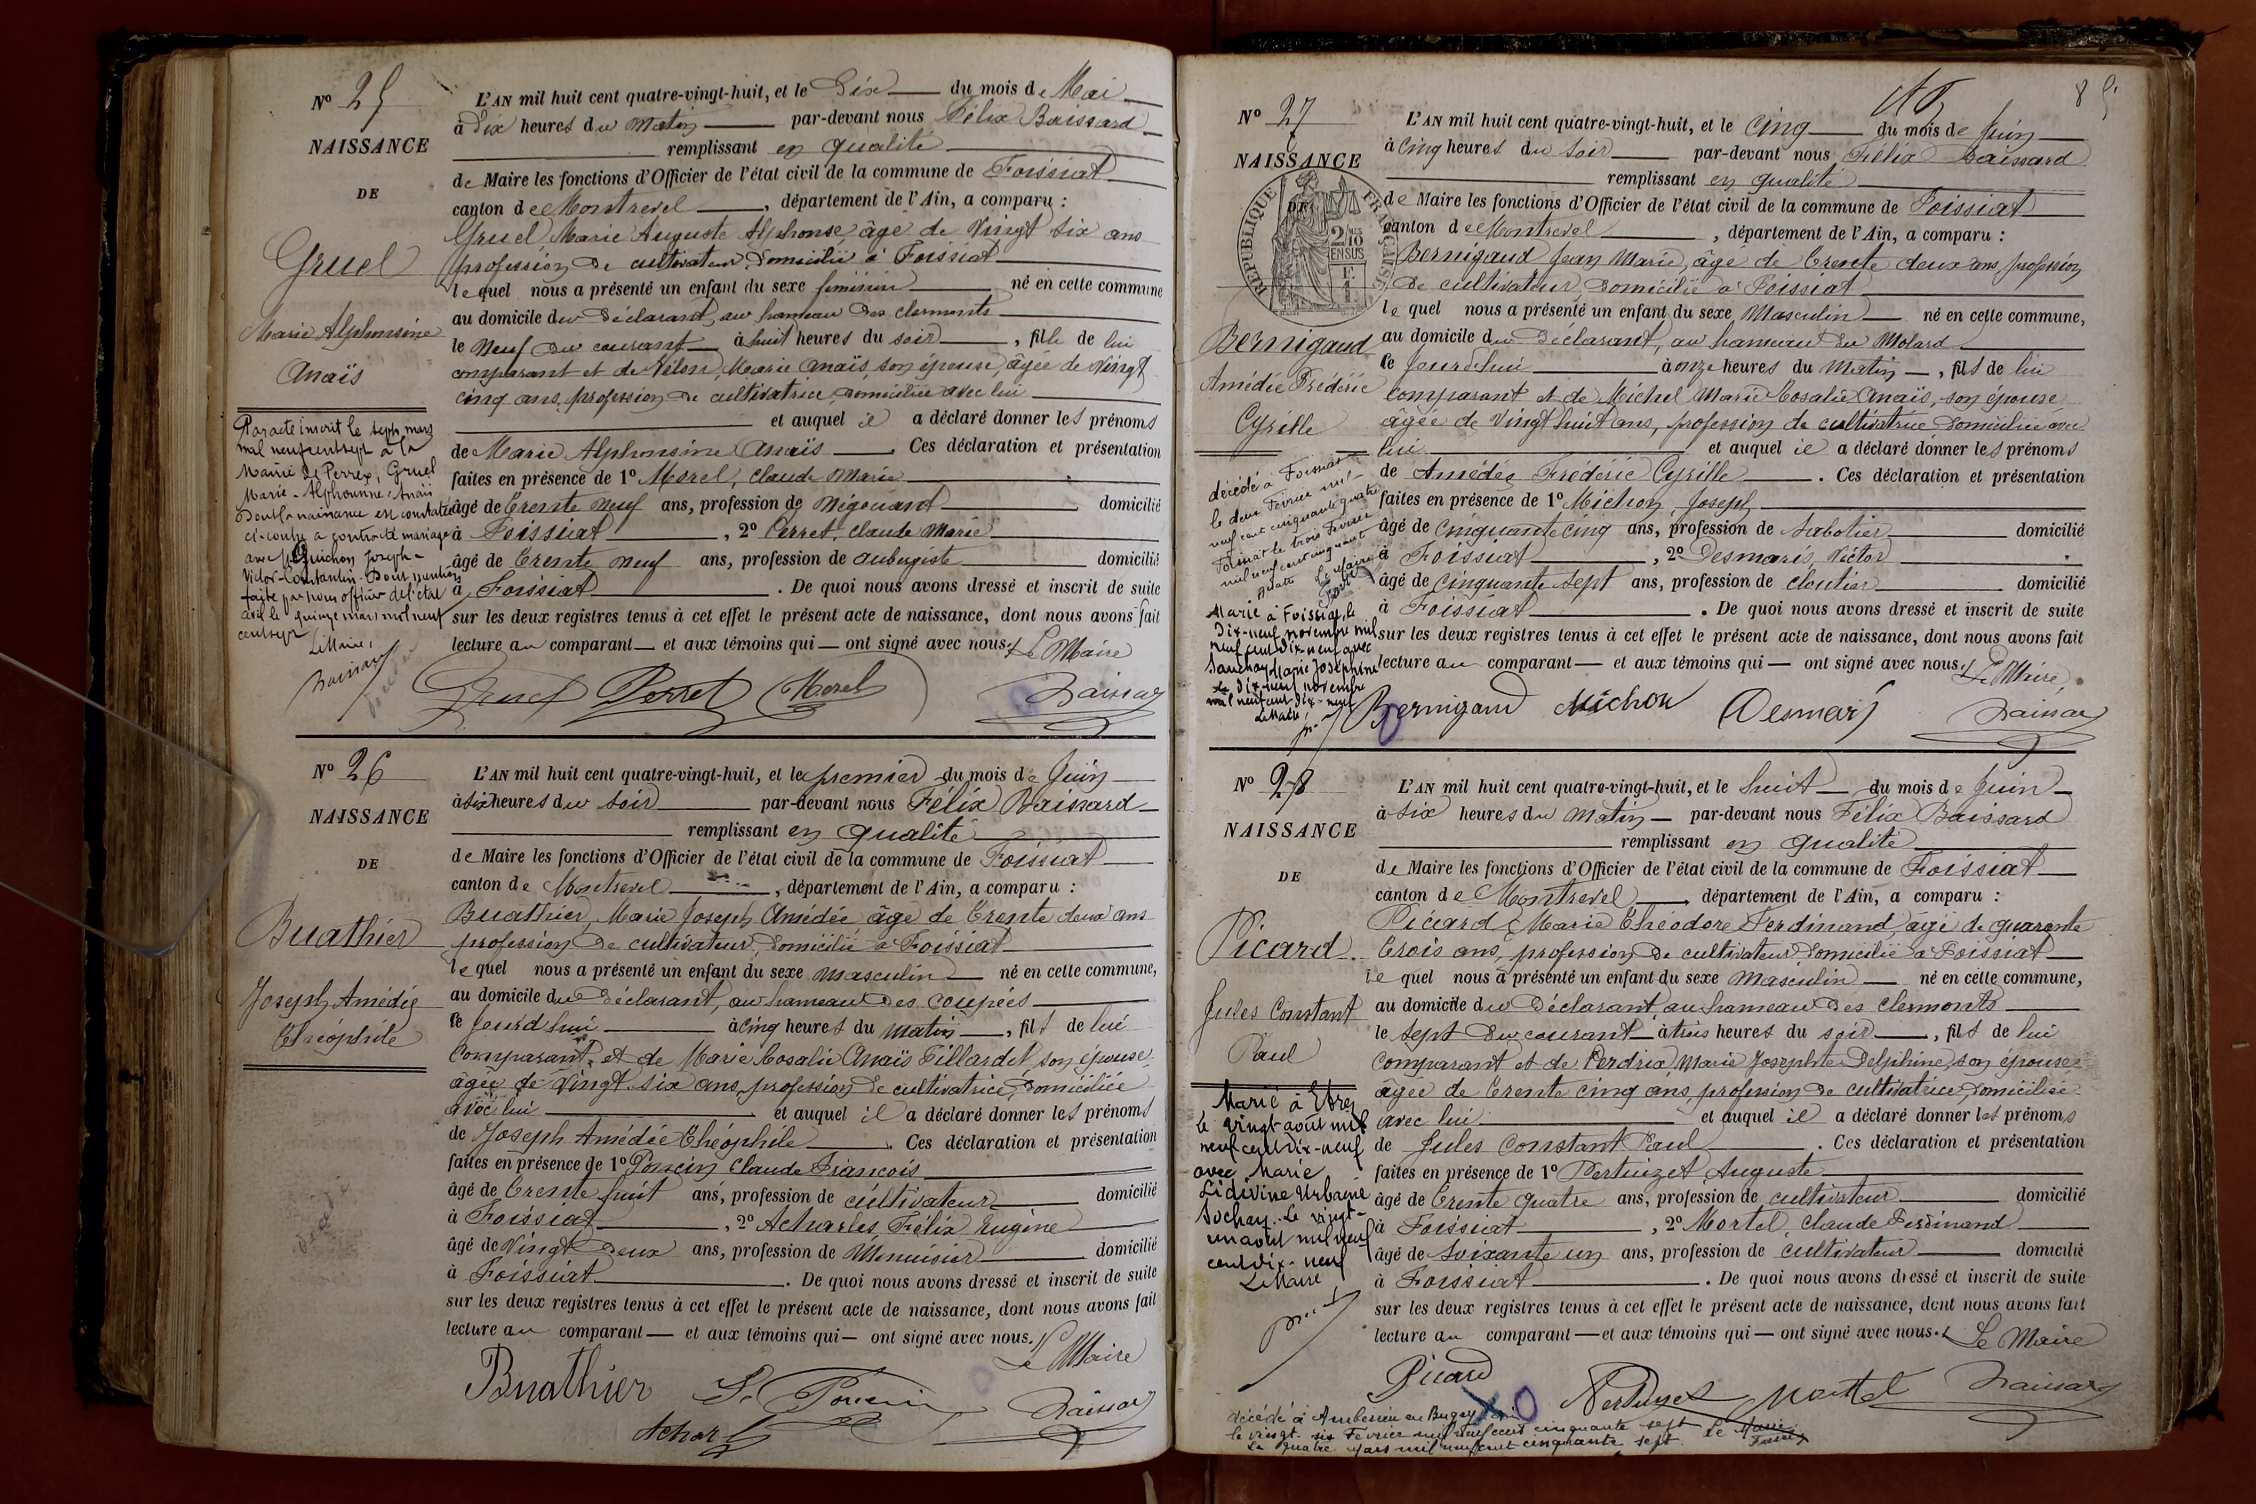 N° 25
NAISSANCE
DE
Gruel
Marie Alphonsine
Anaïs
Par acte inscrit le sept mars
mil neuf cent sept à la
Mairie de Perrex, Gruel
Marie-Alphonsine Anaïs
dont la naissance est constatée
ci-contre a contracté mariage
avec Guichon Joseph-
Victor-Constantin. Dont mention
faite par nous officier de l'état
civil le quinze mars mil neuf
cent sept
Le Maire,
Baissard
L'AN mil huit cent quatre-vingt-huit, et le Dix du mois de Mai
à Dix heures du Matin par-devant nous Félix Baissard
remplissant en qualité
de Maire les fonctions d'Officier de l'état civil de la commune de Foissiat
canton de Montrevel, département de l'Ain, a comparu :
Gruel Marie Auguste Alphonse âgé de Vingt six ans
profession de cultivateur, domicilié à Foissiat
lequel nous a présenté un enfant du sexe féminin né en cette commune
au domicile du Déclarant, au hameau des clermonts
le Neuf du courant à huit heures du soir, fille de lui
comparant et de Vélon, Marie Anaïs, son épouse, âgée de Vingt
cinq ans, profession de cultivatrice, domiciliée avec lui
et auquel il a déclaré donner les prénoms
de Marie Alphonsine Anaïs. Ces déclaration et présentation
faites en présence de 1° Morel, Claude Marie
âgé de Trente Neuf ans, profession de Négociant domicilié
à Foissiat, 2° Perret, Claude Marie
âgé de Trente neuf ans, profession de aubergiste domicilié
à Foissiat. De quoi nous avons dressé et inscrit de suite
sur les deux registres tenus à cet effet le présent acte de naissance, dont nous avons fait
lecture au comparant — et aux témoins qui — ont signé avec nous. Le Maire
Gruel Perret Morel Baissard
N° 26
NAISSANCE
DE
Buathier
Joseph Amédée
Théophile
L'AN mil huit cent quatre-vingt-huit, et le premier du mois de Juin
à six heures du soir par-devant nous Félix Baissard
remplissant en qualité
de Maire les fonctions d'Officier de l'état civil de la commune de Foissiat
canton de Montrevel, département de l'Ain, a comparu :
Buathier, Marie Joseph Amédée, âgé de Trente deux ans
profession de cultivateur, domicilié à Foissiat
lequel nous a présenté un enfant du sexe masculin né en cette commune,
au domicile du Déclarant, au hameau des coupées
le jourd'hui à cinq heures du matin, fils de lui
comparant, et de Marie Rosalie Anaïs Tillardet, son épouse
âgée de Vingt six ans, profession de cultivatrice, domiciliée
avec lui et auquel il a déclaré donner les prénoms
de Joseph Amédée Théophile. Ces déclaration et présentation
faites en présence de 1° Poncin Claude François
âgé de Trente huit ans, profession de cultivateur domicilié
à Foissiat, 2° Acharles, Félix Eugène
âgé de Vingt Deux ans, profession de Menuisier domicilié
à Foissiat. De quoi nous avons dressé et inscrit de suite
sur les deux registres tenus à cet effet le présent acte de naissance, dont nous avons fait
lecture au comparant — et aux témoins qui — ont signé avec nous. Le Maire
Buathier Poncin Baissard
Achar
85
N° 27
NAISSANCE
DE
RÉPUBLIQUE FRANÇAISE
2/10 EN SUS
Bernigaud
Amédée Frédéric
Cyrille
décédé à Foissiat
le deux Février mil
neuf cent cinquante quatre
Foissiat le trois Février
mil neuf cent cinquante
quatre Le Maire
Marié à Foissiat le
Dix-neuf novembre mil
neuf cent dix-neuf avec
Marie Joséphine
Le Dix-neuf novembre
mil neuf cent dix-neuf
Le Maire
L'AN mil huit cent quatre-vingt-huit, et le cinq du mois de Juin
à cinq heures du soir par-devant nous Félix Baissard
remplissant en qualité
de Maire les fonctions d'Officier de l'état civil de la commune de Foissiat
canton de Montrevel, département de l'Ain, a comparu :
Bernigaud Jean Marie, âgé de Trente deux ans, profession
de cultivateur, domicilié à Foissiat
lequel nous a présenté un enfant du sexe Masculin né en cette commune,
au domicile du Déclarant, au hameau du Molard
le jourd'hui à onze heures du Matin, fils de lui
comparant et de Michel Marie Rosalie Anaïs, son épouse
âgée de Vingt huit ans, profession de cultivatrice domiciliée avec
lui et auquel il a déclaré donner les prénoms
de Amédée Frédéric Cyrille. Ces déclaration et présentation
faites en présence de 1° Michon, Joseph,
âgé de cinquante cinq ans, profession de sabotier domicilié
à Foissiat, 2° Desmaris, Victor
âgé de cinquante sept ans, profession de cloutier domicilié
à Foissiat. De quoi nous avons dressé et inscrit de suite
sur les deux registres tenus à cet effet le présent acte de naissance, dont nous avons fait
lecture au comparant — et aux témoins qui — ont signé avec nous. Le Maire
Bernigaud Michon Desmaris Baissard
N° 28
NAISSANCE
DE
Picard
Jules Constant
Paul
Marié à
le vingt août mil
neuf cent dix-neuf
avec Marie
Lidivine Urbanie
Sochay. Le vingt-
un août mil neuf
cent dix-neuf
Le Maire
L'AN mil huit cent quatre-vingt-huit, et le huit du mois de Juin
à six heures du Matin par-devant nous Félix Baissard
remplissant en qualité
de Maire les fonctions d'Officier de l'état civil de la commune de Foissiat
canton de Montrevel, département de l'Ain, a comparu :
Picard, Marie Théodore Ferdinand, âgé de quarante
trois ans, profession de cultivateur domicilié à Foissiat
lequel nous a présenté un enfant du sexe Masculin né en cette commune,
au domicile du Déclarant, au hameau des clermonts
le sept du courant à trois heures du soir, fils de lui
comparant et de Perdrix, Marie Josephte Delphine, son épouse
âgée de Trente cinq ans, profession de cultivatrice, domiciliée
avec lui et auquel il a déclaré donner les prénoms
de Jules Constant Paul. Ces déclaration et présentation
faites en présence de 1° Pertuizet, Auguste
âgé de Trente quatre ans, profession de cultivateur domicilié
à Foissiat, 2° Mortel, Claude Ferdinand
âgé de soixante un ans, profession de cultivateur domicilié
à Foissiat. De quoi nous avons dressé et inscrit de suite
sur les deux registres tenus à cet effet le présent acte de naissance, dont nous avons fait
lecture au comparant — et aux témoins qui — ont signé avec nous. Le Maire
Picard Pertuizet Mortel Baissard
décédé à Ambérieu en Bugey
le vingt six Février mil neuf cent cinquante sept Le Maire
Le quatre mars mil neuf cent cinquante sept